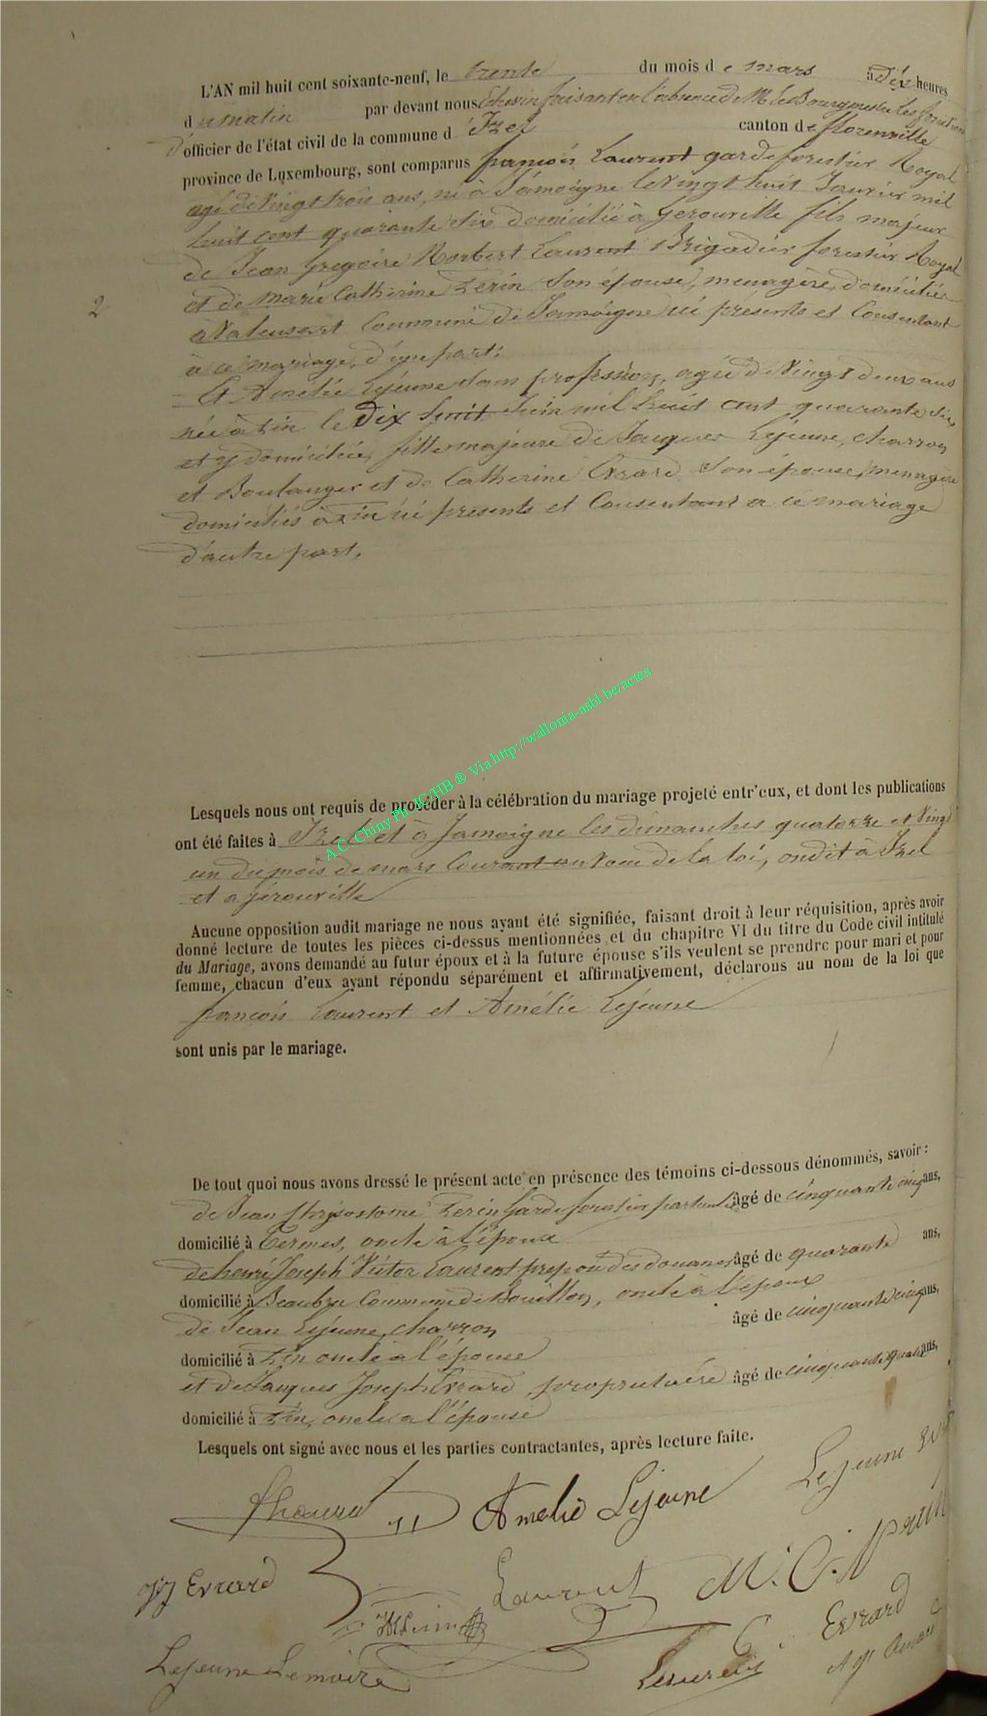 L'AN mil huit cent soixante-neuf, le trente du mois de mars à Dix heures
du matin par devant nous Echevin faisant en l'absence de Mr le Bourgmestre les fonctions
d'officier de l'état civil de la commune d'Izel canton de florenville
province de Luxembourg, sont comparus françois Laurent garde forestier Royal
agé de Vingt trois ans, né à Jamoigne le Vingt huit Janvier mil
huit cent quarante six domicilié à Gerouville fils majeur
de Jean Gregoire Norbert Laurent Brigadier forestier Royal
et de Marie Catherine Perin Son épouse, menagère, domiciliés
a Valensart Commune de Jamoigne ici présents et Consentant
à ce mariage, d'une part;
Et Amélie Lejeune sans profession, agée de Vingt deux ans
née à Pin le Dix huit Juin mil huit cent quarante six
et y domiciliée, fille majeure de Jacques Lejeune, charron
et Boulanger et de Catherine Evrard Son épouse, menagère
domiciliés à Pin ici présents et Consentant a ce mariage
d'autre part.
2
Lesquels nous ont requis de procéder à la célébration du mariage projeté entr'eux, et dont les publications
ont été faites à Izel et à Jamoigne les dimanches quatorze et Vingt
un du mois de mars Courant au Voeu de la loi, ondit à Izel
et a gérouville
Aucune opposition audit mariage ne nous ayant été signifiée, faisant droit à leur réquisition, après avoir
donné lecture de toutes les pièces ci-dessus mentionnées et du chapitre VI du titre du Code civil intitulé
du Mariage, avons demandé au futur époux et à la future épouse s'ils veulent se prendre pour mari et pour
femme, chacun d'eux ayant répondu séparément et affirmativement, déclarons au nom de la loi que
françois Laurent et Amélie Lejeune
sont unis par le mariage.
De tout quoi nous avons dressé le présent acte en présence des témoins ci-dessous dénommés, savoir :
de Jean Chrysostome Perin Garde forestier particulier âgé de cinquante cinq ans,
domicilié à Termes, oncle à l'époux
de henri Joseph Victor Laurent préposé des douanes âgé de quarante ans,
domicilié à Beaubru Commune de Bouillon, oncle à l'époux
de Jean Lejeune, charron âgé de cinquante cinq ans,
domicilié à Pin oncle a l'épouse
et de Jacques Joseph Evrard propriétaire âgé de cinquante quatre ans,
domicilié à Pin, oncle a l'épouse
Lesquels ont signé avec nous et les parties contractantes, après lecture faite.
Amelie Lejeune
Lejeune
JJ Evrard
Laurent
M. C. Perin
Evrard
Lejeune Lemoire
A.C. Chiny Ph. JC/HB ® Via http://wallonia-asbl.be/actes